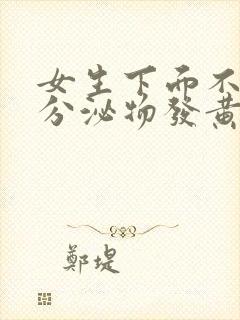 女生下面不
分泌物發黃
鄭堤